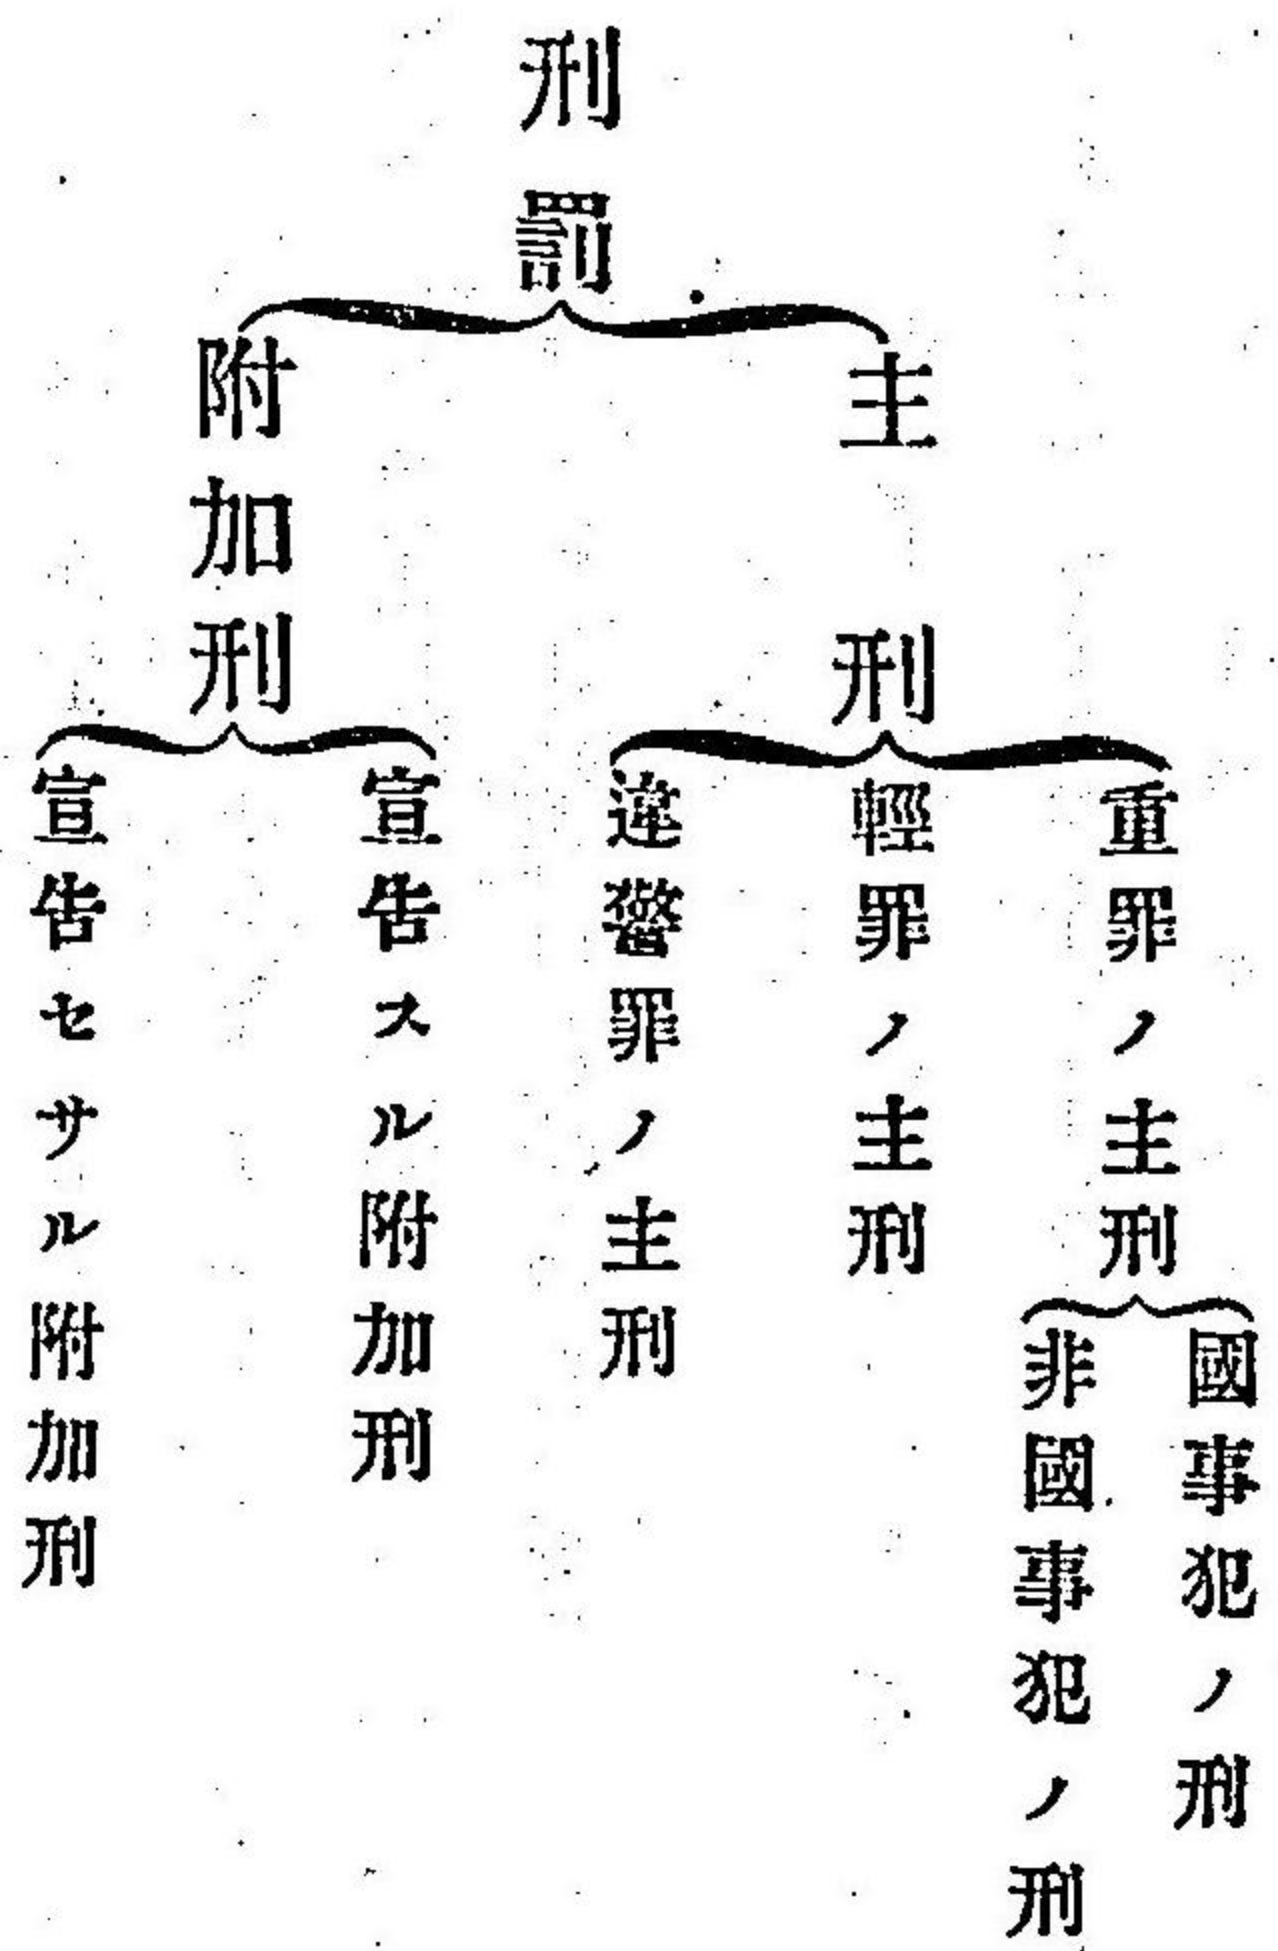 刑罰
主刑
重罪ノ主刑
國事犯ノ刑
非國事犯ノ刑
輕罪ノ主刑
違警罪ノ主刑
附加刑
宣告スル附加刑
宣告セサル附加刑